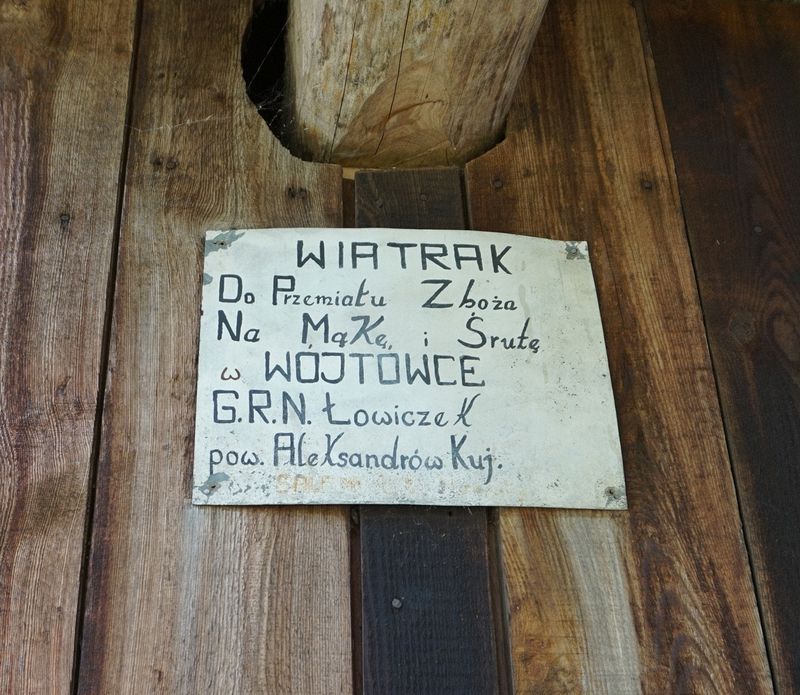 WIATRAK
Do Przemiału Zboża
Na Mąkę, i Śrutę
w WÓJTÓWCE
G.R.N. Łowiczek
pow. Aleksandrów Kuj.